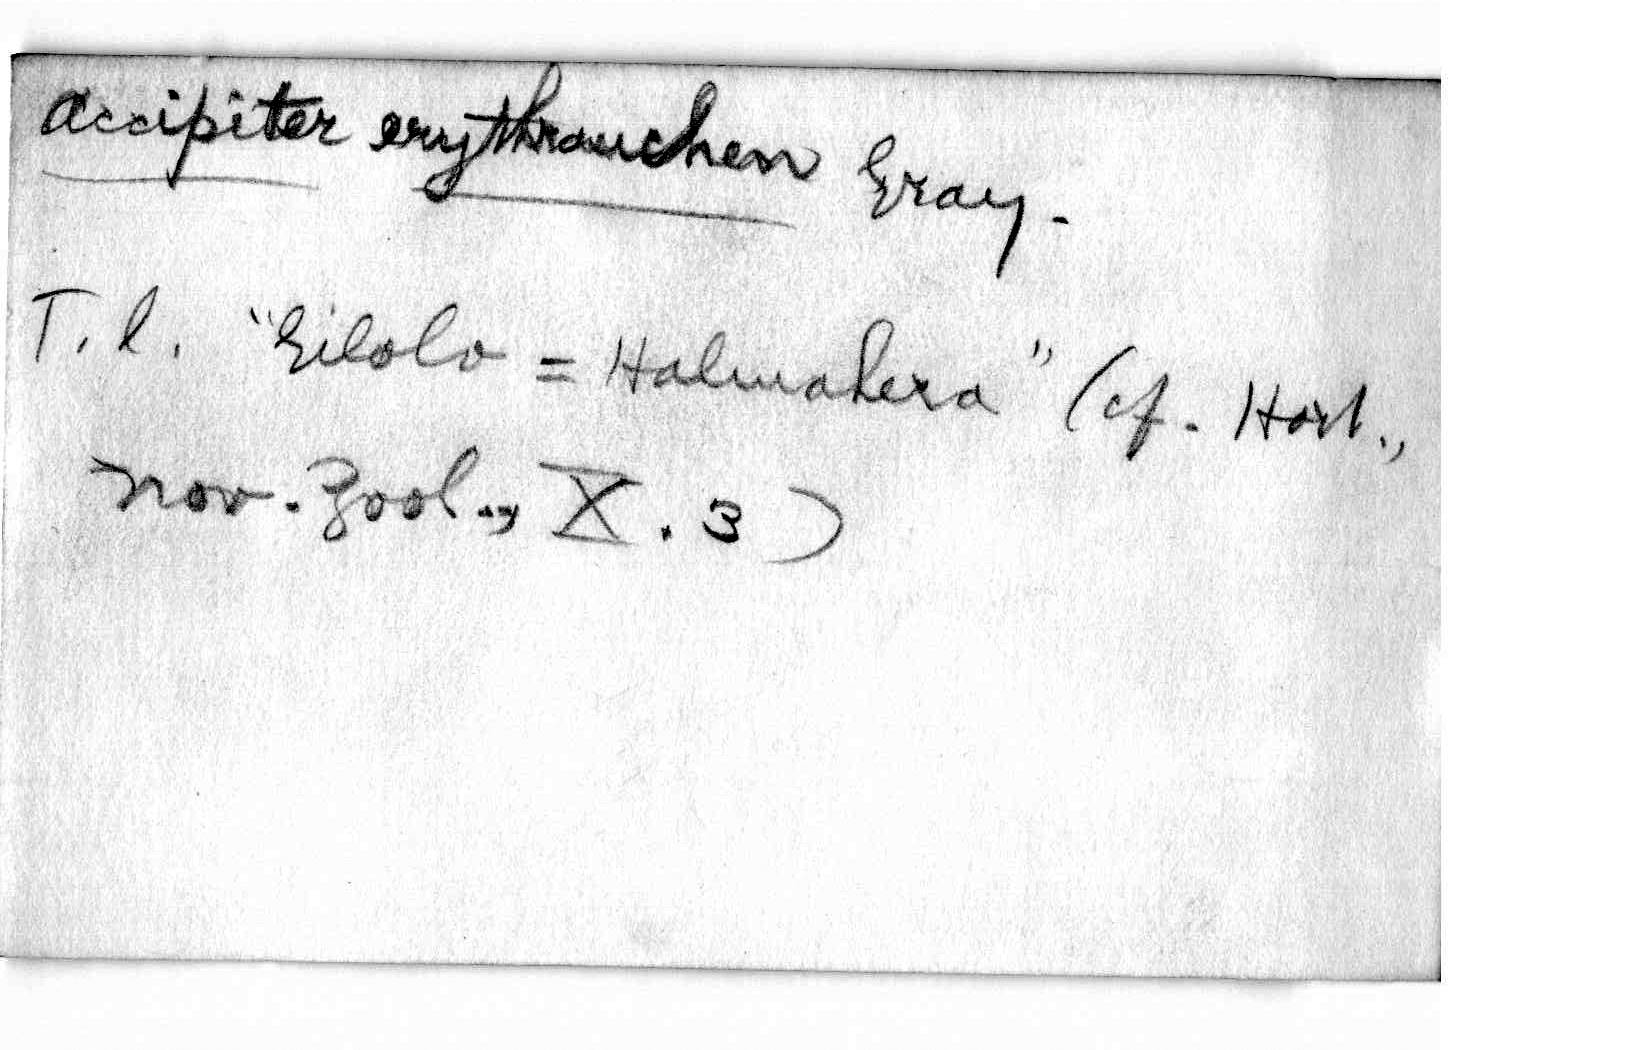 Accipiter erythrauchen Gray.
T. l. "Gilolo = Halmahera" (cf. Hart.,
Nov. Zool., X. 3)